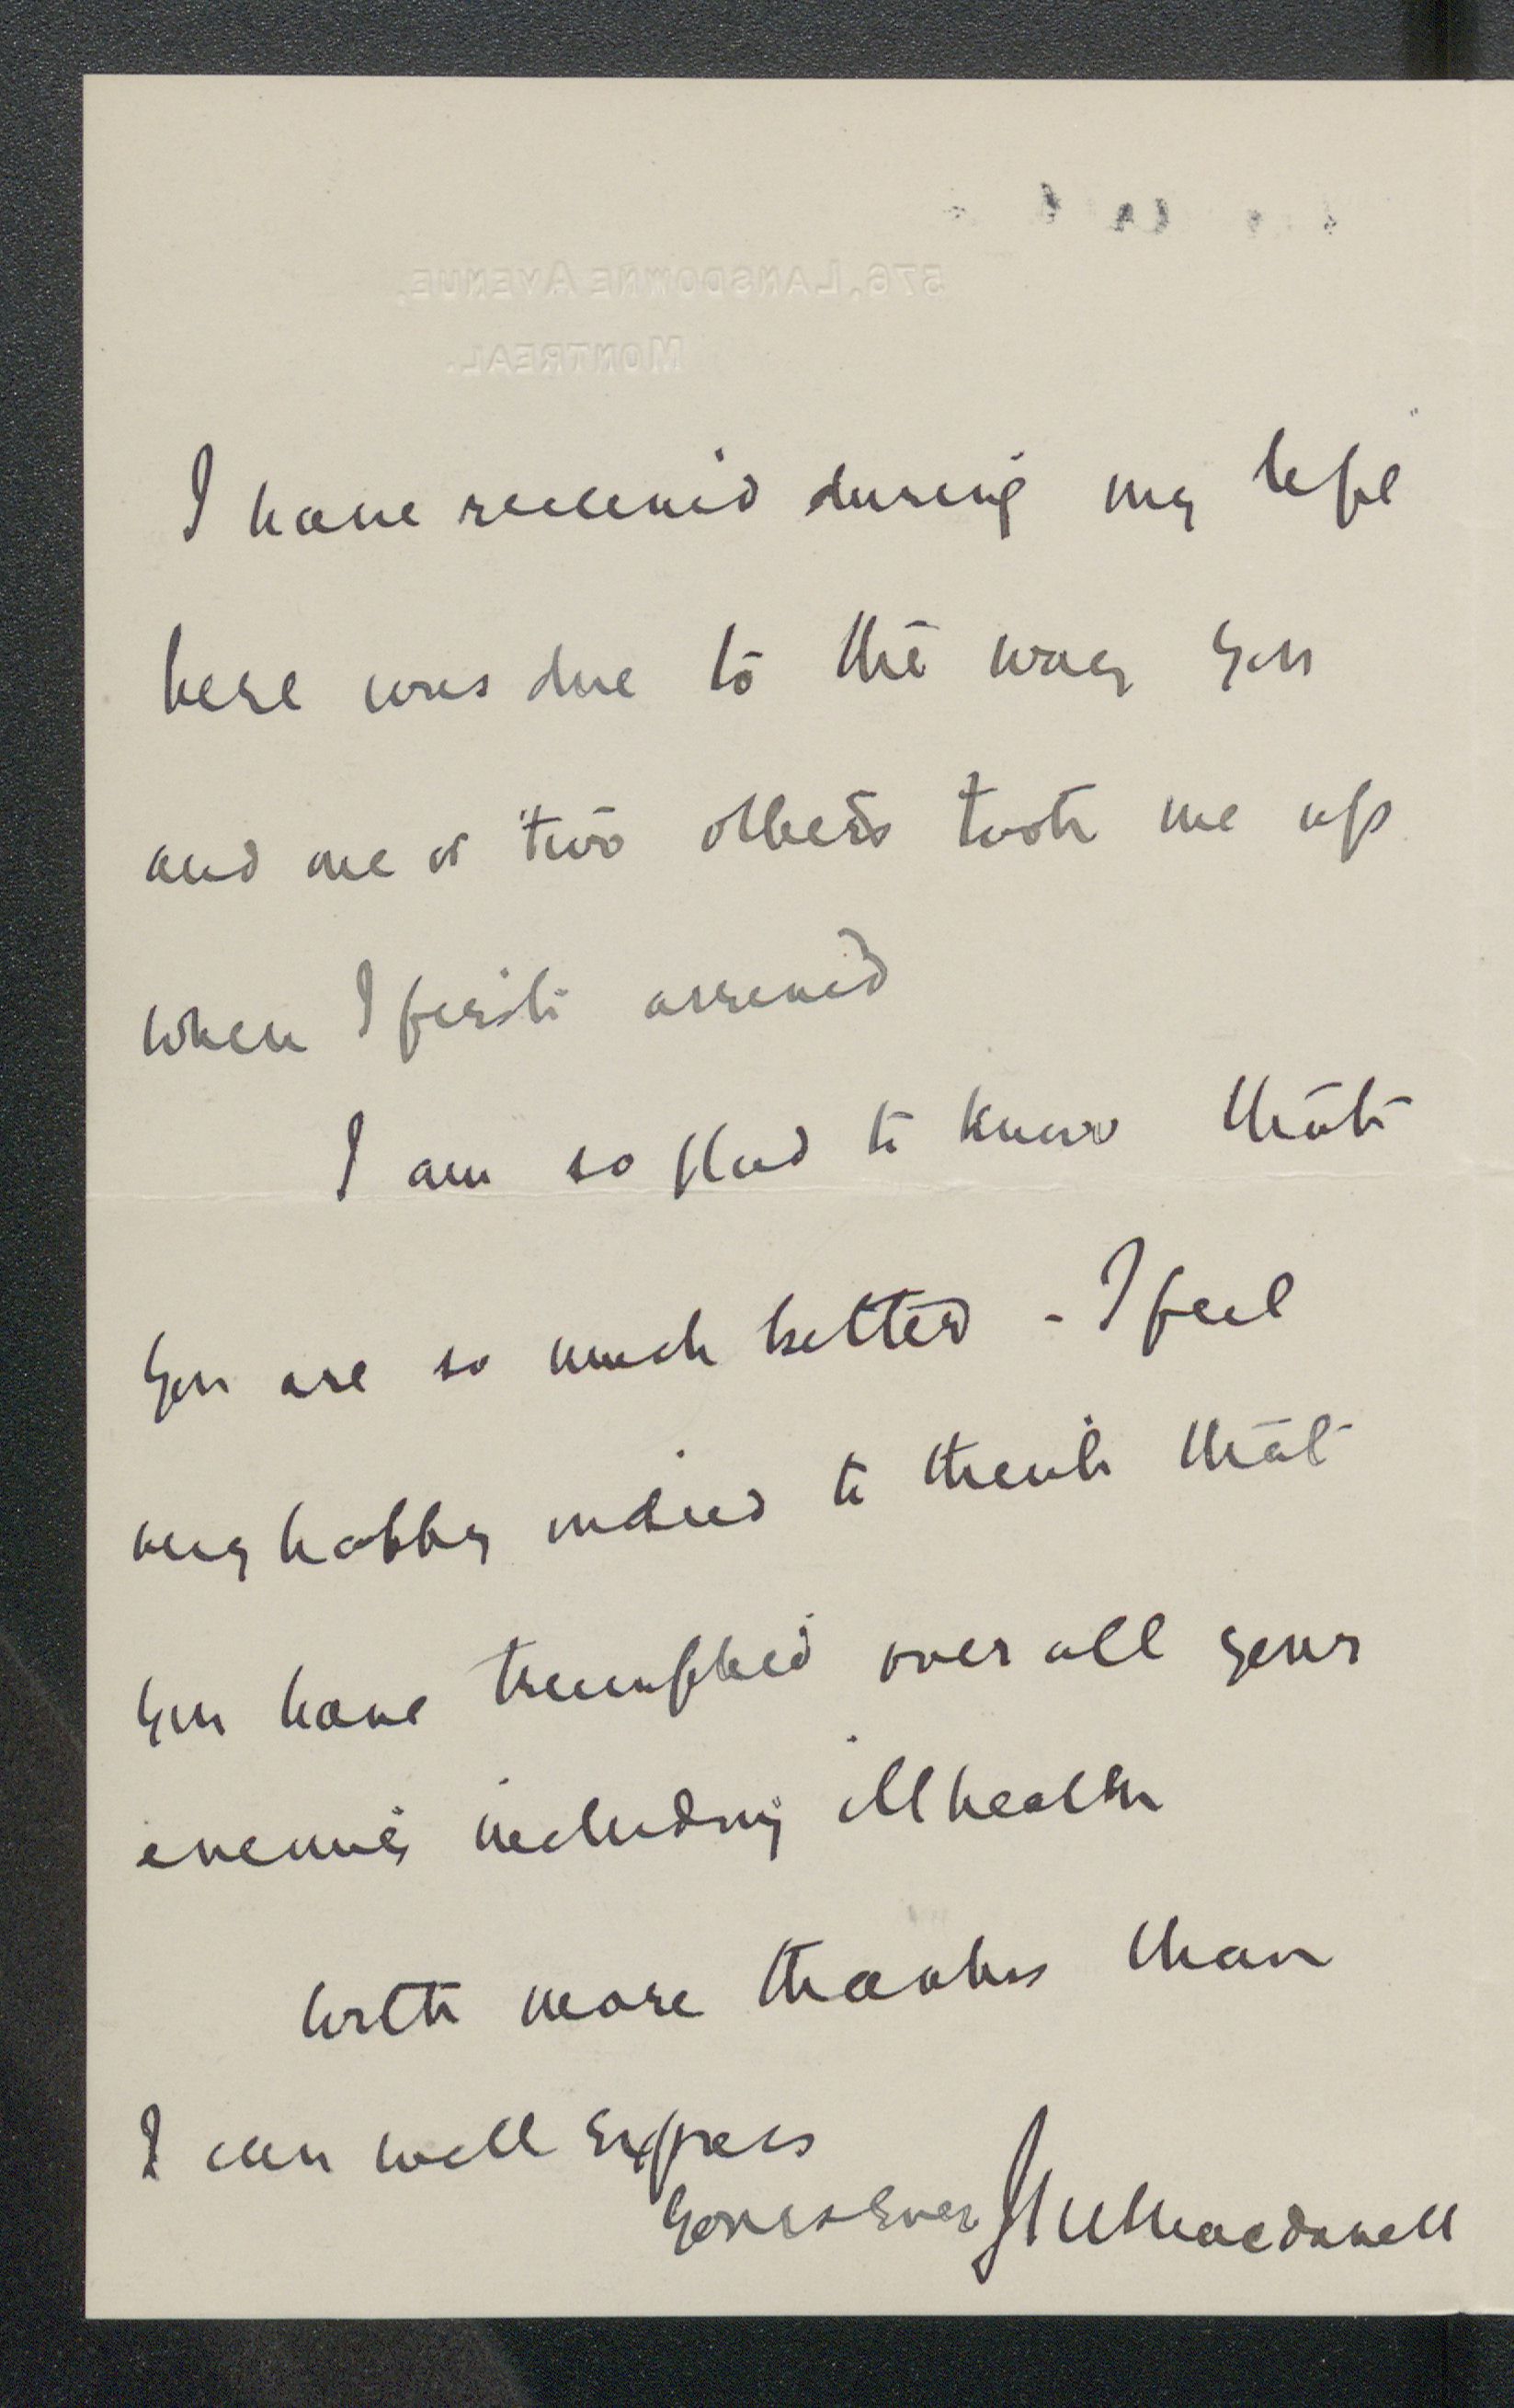 576, LANSDOWNE AVENUE,
MONTREAL.
I have received during my life
here was due to the way you
and one or two others took me up
when I first arrived
I am so glad to know that
you are so much better - I feel
very happy indeed to think that
you have triumphed over all your
enemies including ill health
With more thanks than
I can well express
Yours Ever
Macdonell